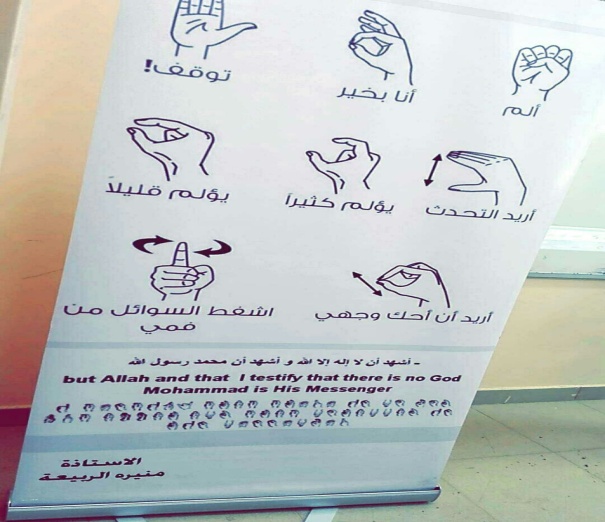 ألم
أنا بخير
توقف!
أريد التحدث
يؤلم كثيراً
يؤلم قليلاً
أريد أن أحك وجهي
اشفط السوائل من
فمي
- أشهد أن لا إله إلا الله و أشهد أن محمد رسول الله
but Allah and that I testify that there is no God
Mohammad is His Messenger
الاستاذة
منيره الربيعة